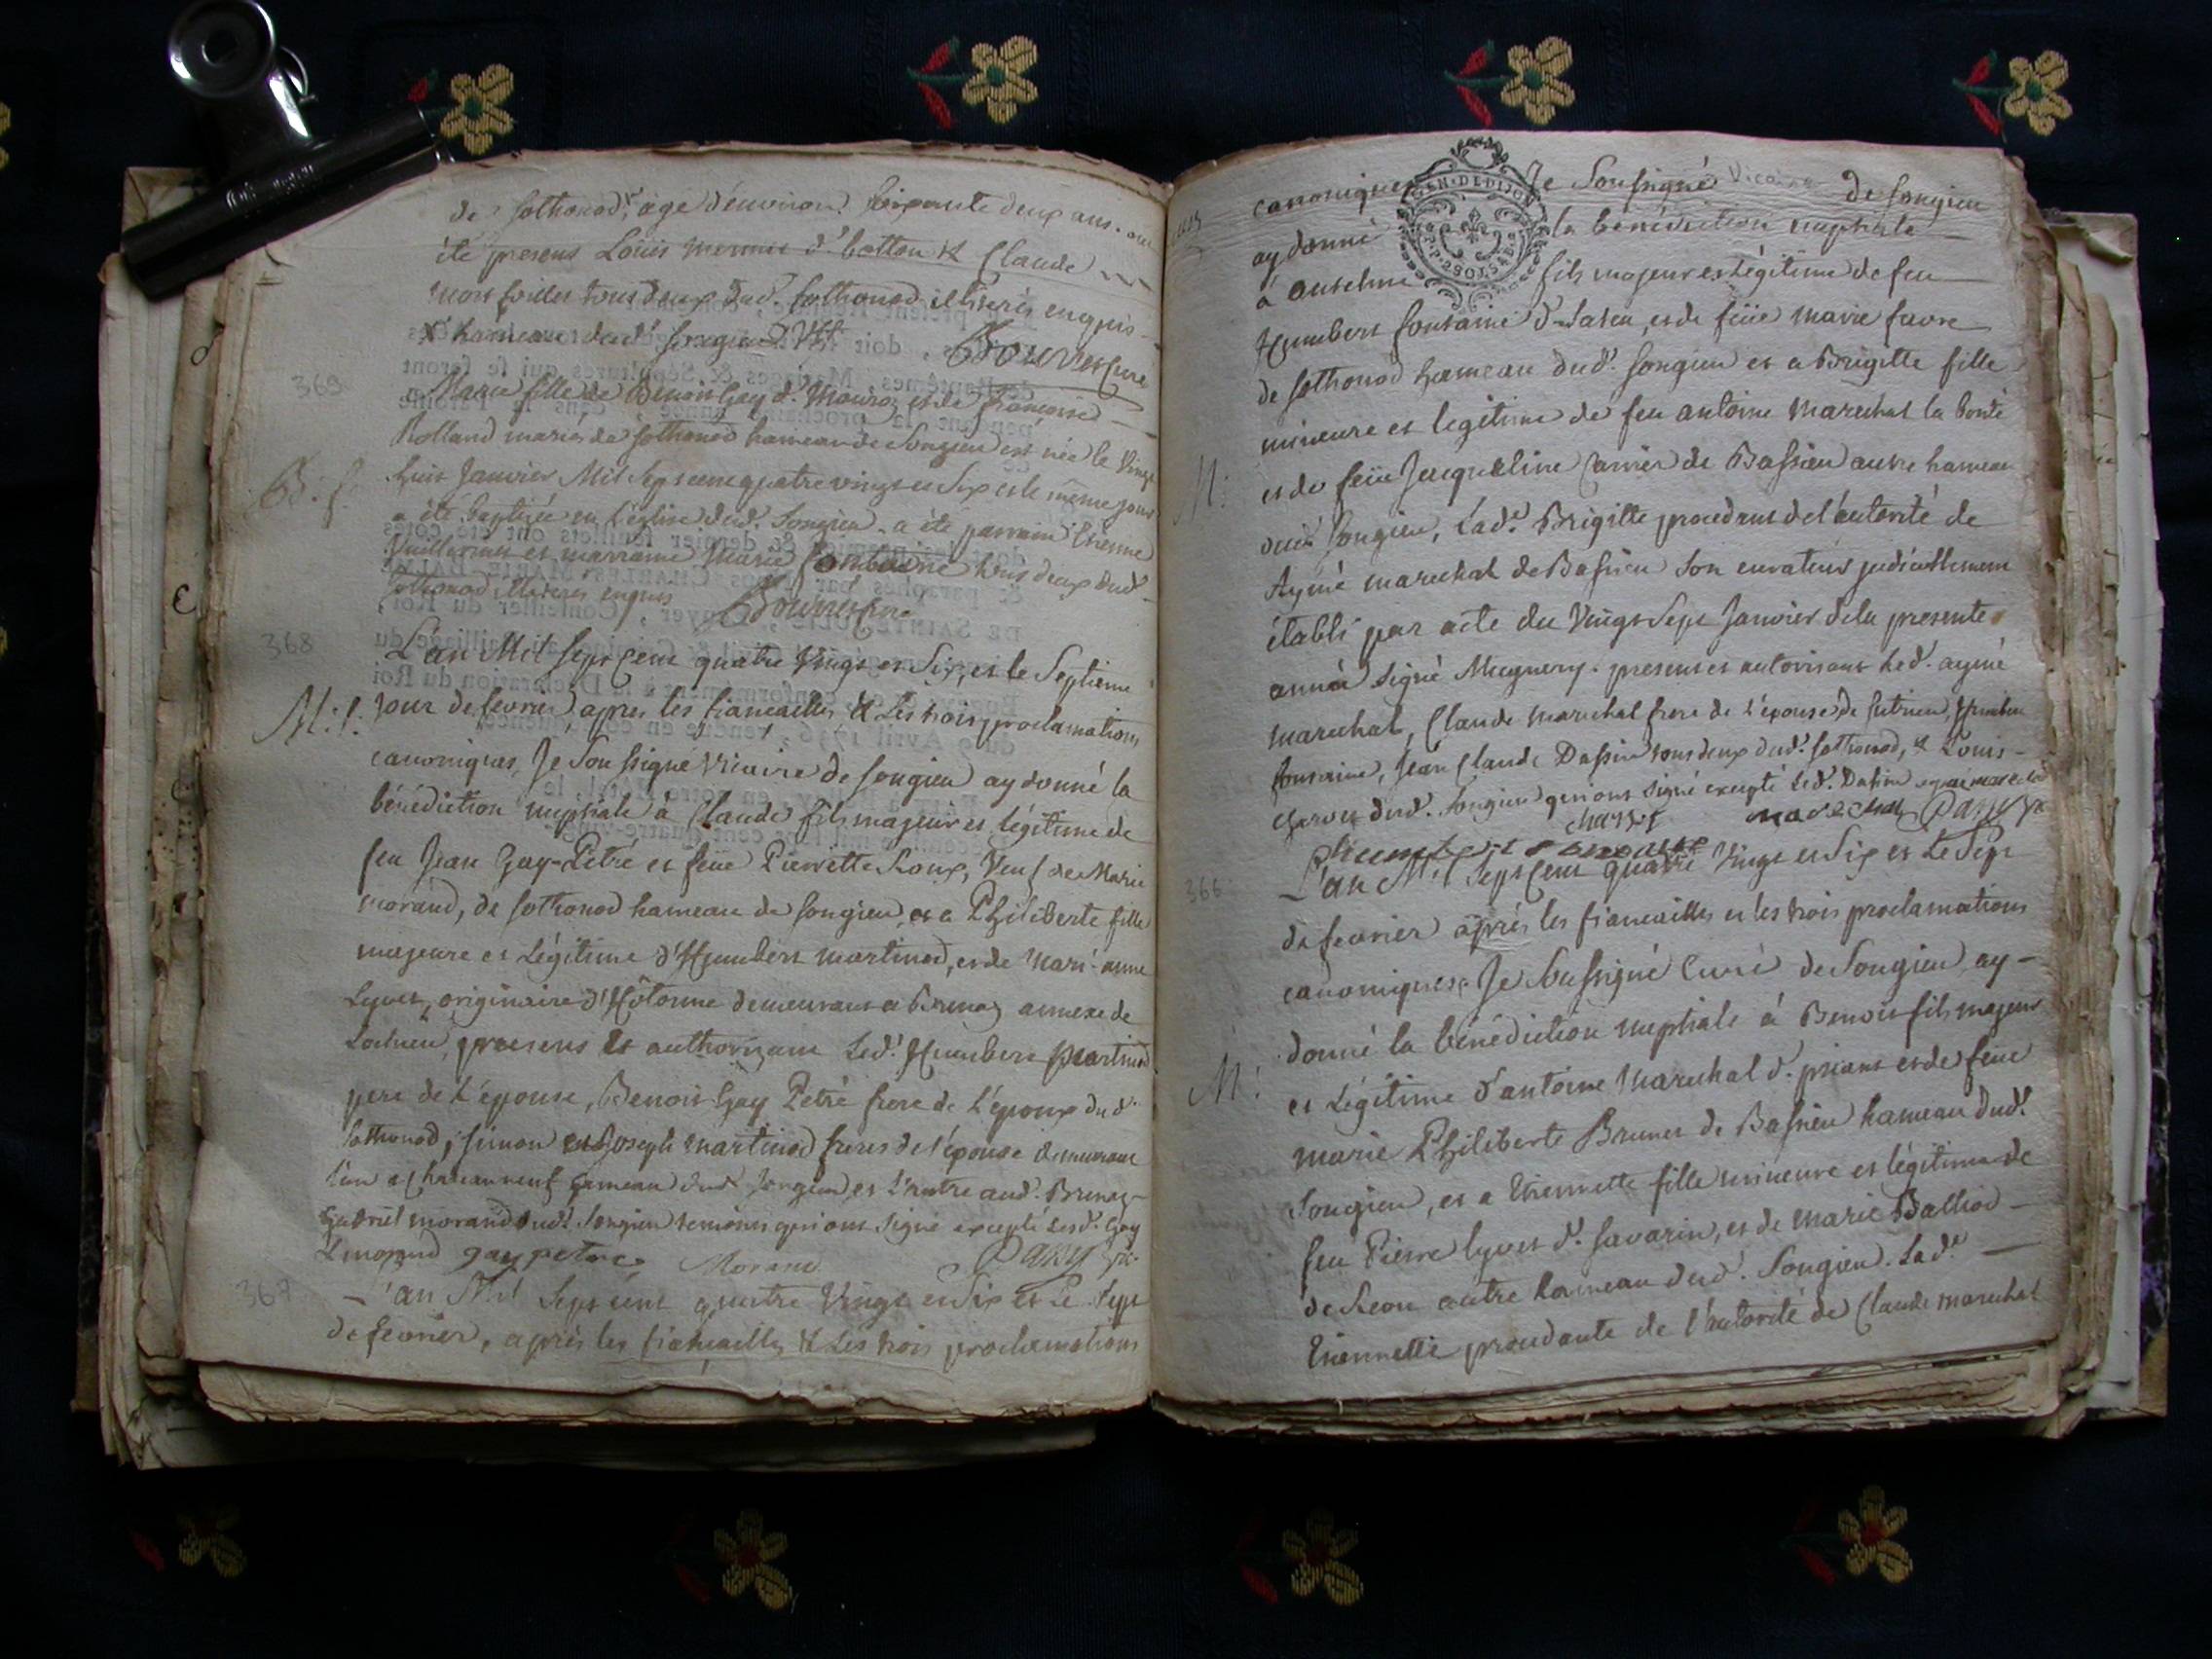 de Sothonod, agé d'environ soixante deux ans. ont
été presens Loüis mermet d. botton & Claude
tous deux dud. Sothonod illiterés enquis
x hameau dud. Songieu
Bouvier curé
369
Marie fille de Benoit Gay d. Mouroz et de françoise
Rolland mariés de Sothonod hameau de Songieu est née le Vingt
huit Janvier Mil Sept cent quatre vingt et Six et le même jour
B. f.
a été baptisée en l'église dud. Songieu. a été parrain Etienne
Vuillermet et marraine Marie tous deux dud.
Sothonod illiterés enquis Bouvier curé
368
L'an Mil Sept Cent quatre Vingt et Six, et le Septieme
M. f.
Jour de fevrier, apres les fiancailles & les trois proclamations
canoniques, Je Soussigné Vicaire de Songieu ay donné la
bénédiction nuptiale à Claude fils majeur et légitime de
feu Jean Gay-Pétré et feüe Pierrette Roux, Veuf de Marie
morand, de Sothonod hameau de Songieu, et a Philiberte fille
majeure et Légitime d'Humbert martinod, et de Mari-anne
Lyvet, originaire d'Hôtonne demeurant a Brenaz annexe de
Lochieu, presens et authorizant Led. Humbert Martinod
pere de L'épouse, Benoit Gay Pétré frere de L'époux dud.
Sothonod, simon et Joseph martinod freres de l'épouse demeurant
l'un a Chateauneuf hameau dud. Songieu et L'autre aud. Brenaz
Gabriel morand dud. Songieu temoins qui ont signé excepté Lesd. Gay
& morand gay petre Morand Pany
367
L'an Mil Sept cent quatre Vingt et Six et Le Sept
de fevrier, après les fiancailles & Les trois proclamations
canoniques Je Soussigné Vicaire de Songieu
GEN. DE DIJON
ay donné la bénédiction nuptiale
à anselme fils majeur et Légitime de feu
Humbert fontaine d. et de feüe marie favre
de Sothonod hameau dud. Songieu et a Brigitte fille
mineure et legitime de feu antoine Marechal la bonté
M.
et de feüe Jacqueline Carrier de Bassieu autre hameau
dud. Songieu, Lad. Brigitte procedant de l'autorité de
Aymé marechal de Bassieu Son curateur judiciellement
établi par acte du Vingt Sept Janvier de la presente
année signé Mugnery. presens et autorisant Led. aymé
marechal, Claude marechal frere de l'épouse de Sutrieu, Humbert
fontaine, Jean Claude Dassin tous deux dud. Sothonod, & Louis
charvet dud. Songieu qui ont signé excepté Led. Dassin
marechal Pany
humbert fontaine
366
L'an Mil Sept Cent quatre Vingt et Six et Le Sept
de fevrier après les fiancailles et les trois proclamations
canoniques, Je Soussigné Curé de Songieu, ay
donné la bénédiction nuptiale à Benoit fils majeur
M.
et Légitime d'antoine Marechal d. et de feüe
marie Philiberte Brunet de Bassieu hameau dud.
Songieu, et a Etiennette fille mineure et légitime de
feu Pierre Lyvet d. Savarin, et de Marie Balliod
de autre hameau dud. Songieu. Lad.
Etiennette procedante de l'autorité de Claude marechal